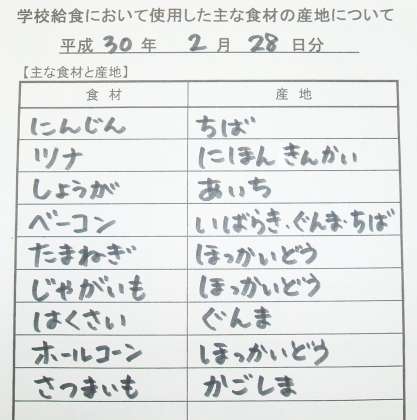 学校給食において使用した主な食材の産地について
平成 30 年 2 月 28 日分
【主な食材と産地】
食材 産地
にんじん ちば
ツナ にほんきんかい
しょうが あいち
ベーコン いばらき・ぐんま・ちば
たまねぎ ほっかいどう
じゃがいも ほっかいどう
はくさい ぐんま
ホールコーン ほっかいどう
さつまいも かごしま